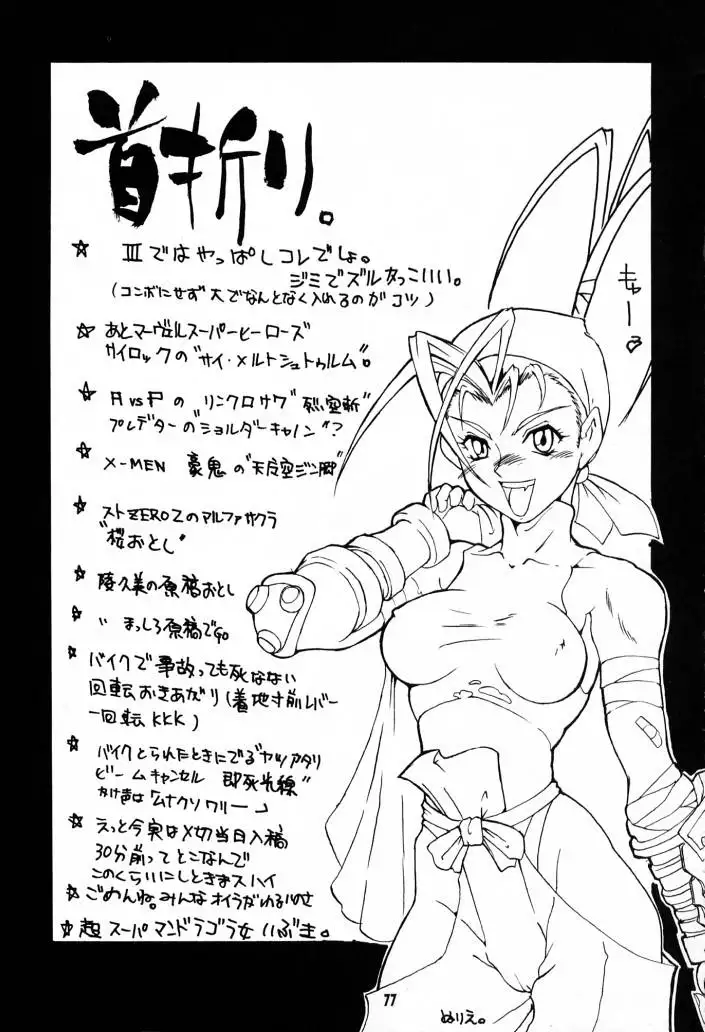 首折り。
☆ IIIではやっぱしコレでしょ。
ジミでズルかっこいい。
(コンボにせず大でなんとなく入れるのがコツ)
☆ あとマーヴェルスーパーヒーローズ
サイロックの"サイ・メルトシュトゥルム"。
☆ AvsPの"リンクロサワ"
プレデターの"ショルダーキャノン"?
☆ X-MEN 豪鬼の"天魔空ジン脚"
☆ ストZERO2のマルファサクラ
"桜おとし"
☆ 陵久美の原稿おとし
☆ 〃 まっしろ原稿でGO
☆ バイクで事故っても死なない
回転おきあがり(着地寸前レバー
一回転KKK)
☆ バイクとられたときにでる"ヤツアタリ
ビームキャンセル 即死光線"
かけ声は「ムナクソワリー」
☆ えっと今実は〆切当日入稿
30分前ってとこなんで
このくらいにしときまスハイ
☆ ごめんね。みんなオイラがわるいのさ
☆ 超スーパマンドラゴラ女いぶき。
キャー♡
77
ぬりえ。